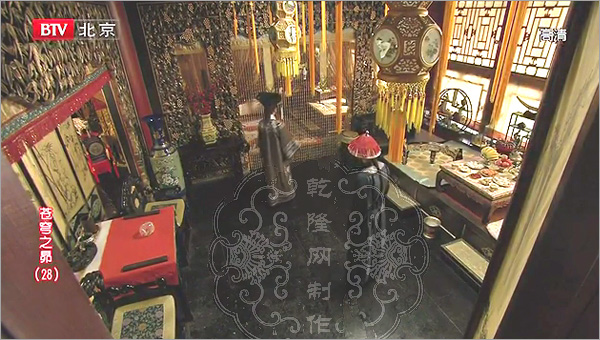 BTV 北京
高清
苍穹之昴
(28)
乾隆网制作